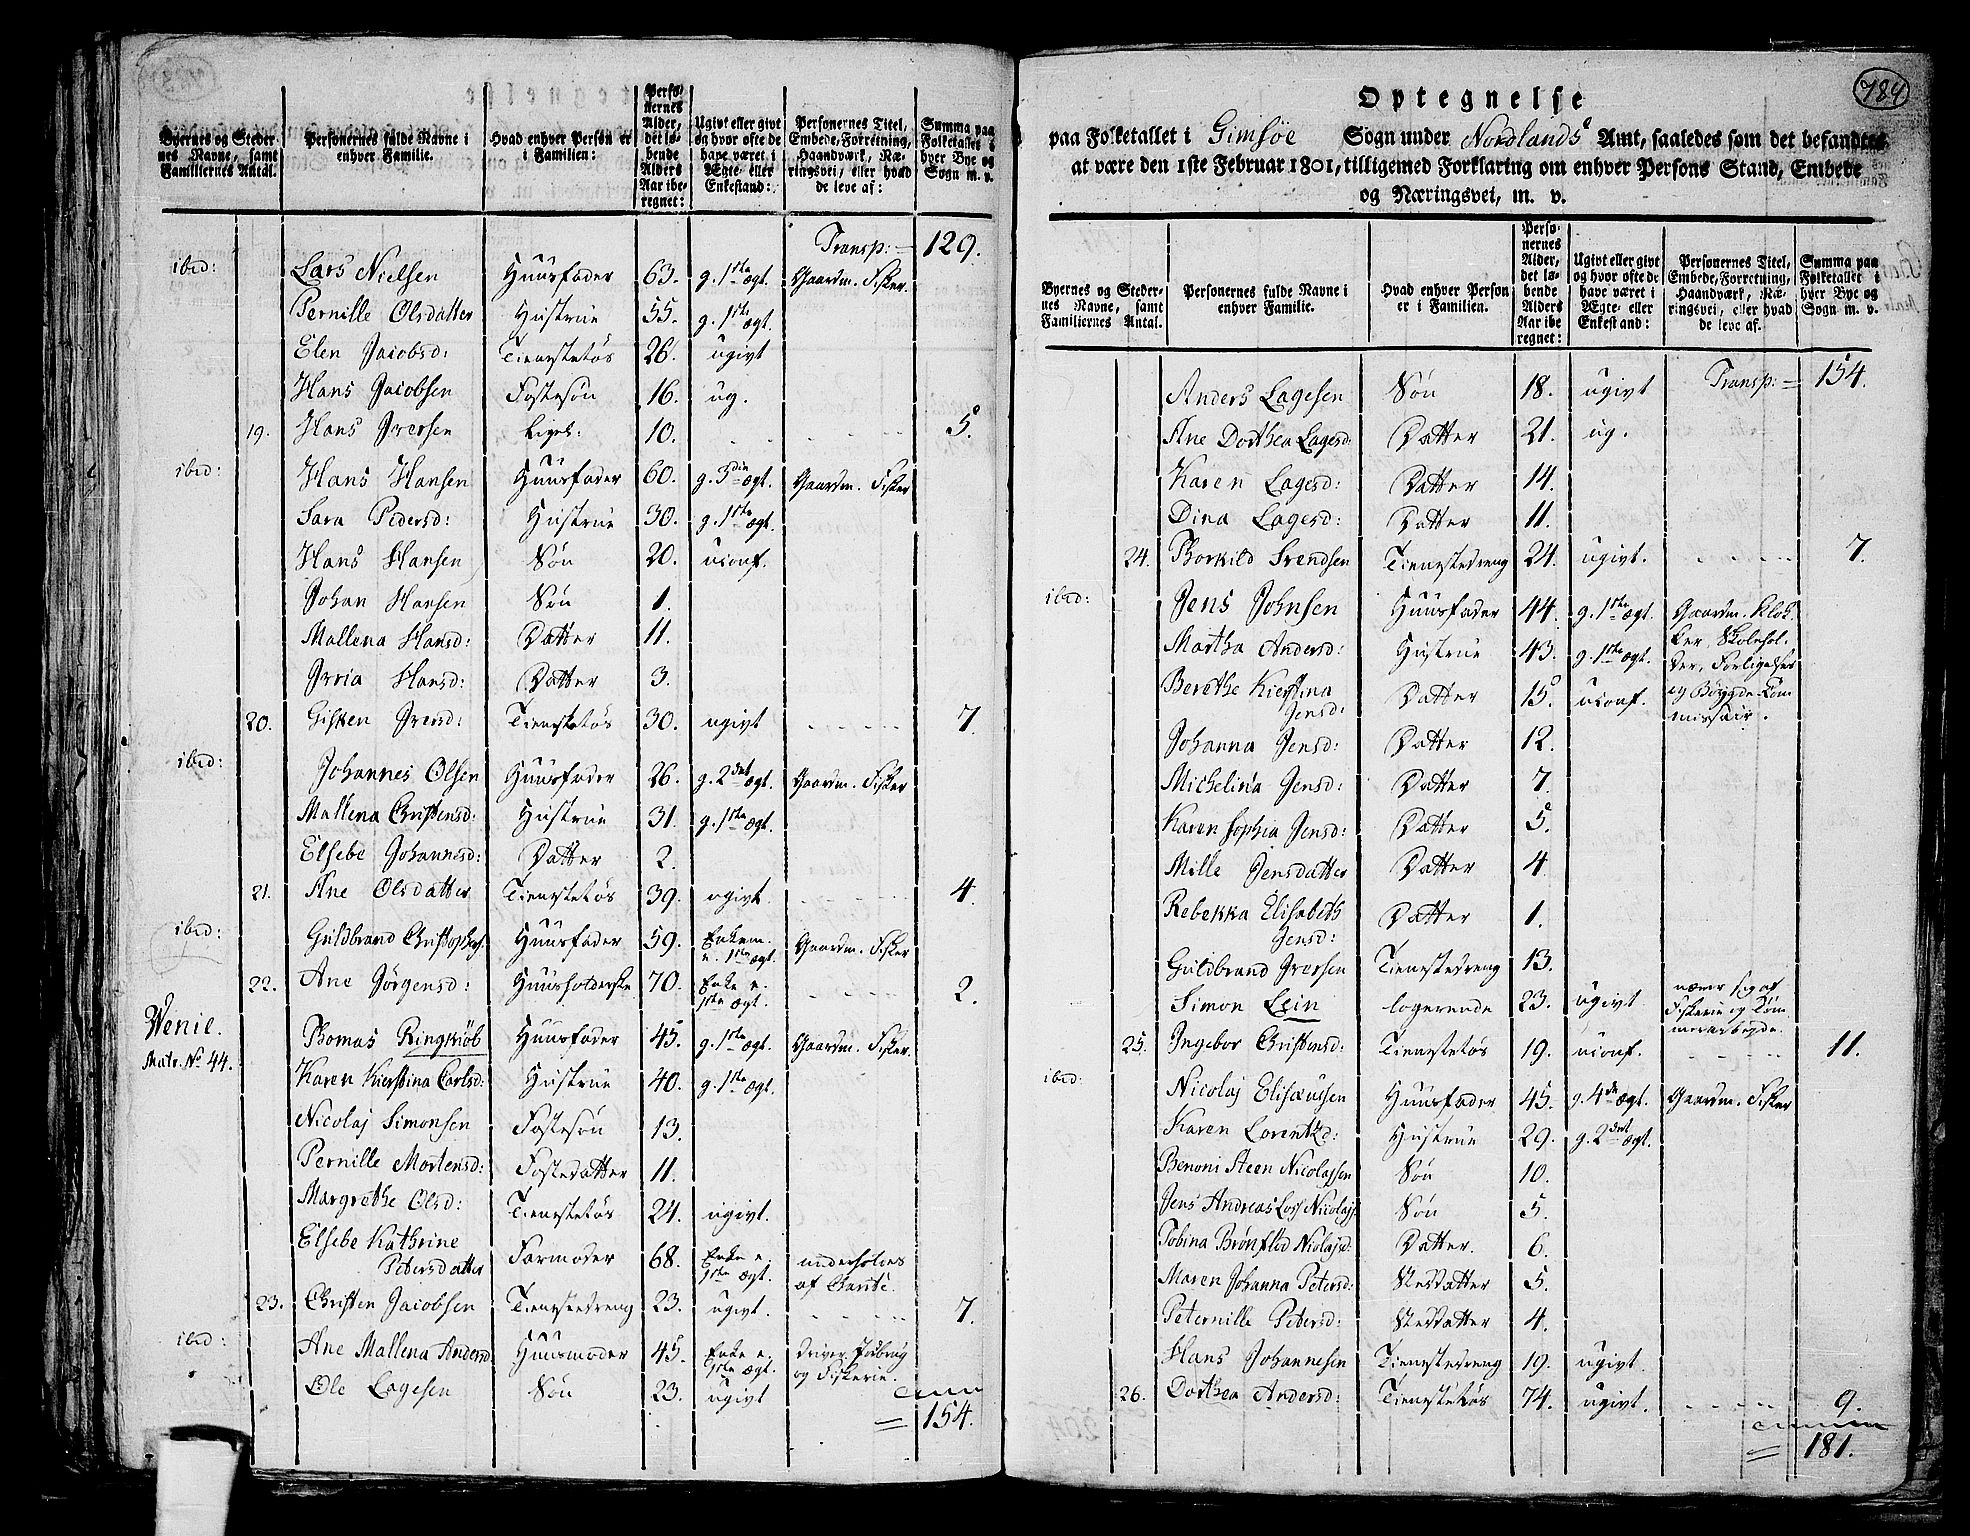 Byernes og Stedernes Navne, samt Familiernes Antal.
Personernes fulde Navne i enhver Familie.
Hvad enhver Person er i Familien:
Personernes Alder, det løbende Alders Aar iberegnet:
Ugivt eller givt og hvor ofte de have været i Ægte- eller Enkestand:
Personernes Titel, Embede, Forretning, Haandværk, Næringsvei, eller hvad de leve af:
Summa paa Folketallet i hver Bye og Sogn m. v.
Transp: 129.
ibid: Lars Nielsen Huusfader 63. g. 1ste ægt. Gaardm. Fisker
Pernille Olsdatter Hustrue 55. g. 1ste ægt.
Elen Jacobsd: Tienestetøs 26. ugivt
Hans Jacobsen Fostesøn 16. ug.
19. Hans Iversen Ligel: 10. 5.
ibid: Hans Hansen Huusfader 60. g. 3die ægt. Gaardm. Fisker
Sara Pedersd: Hustrue 30. g. 1ste ægt.
Hans Hansen Søn 20. uconf.
Johan Hansen Søn 1.
Mallena Hansd: Datter 11.
Grria Hansd: Datter 3.
20. Gisken Iversd: Tienestetøs 30. ugivt 7.
ibid: Johannes Olsen Huusfader 26. g. 2det ægt. Gaardm. Fisker
Mallena Christensd: Hustrue 31. g. 1ste ægt.
Elsebe Johannesd: Datter 2.
21. Ane Olsdatter Tienestetøs 39. ugivt 4.
ibid: Guldbrand Christophers. Huusfader 59. Enkem. e. 1ste ægt. Gaardm. Fisker
22. Ane Jørgensd: Huusholderske 70. Enke e. 1ste ægt. 2.
Wenie. Matr. No 44.
Thomas Ringkiöb Huusfader 45. g. 1ste ægt. Gaardm. Fisker.
Karen Kierstina Carlsd: Hustrue 40. g. 1ste ægt.
Nicolaj Simonsen Fostesøn 13.
Pernille Mortensd: Fostedatter 11.
Margrethe Olsd: Tienestetøs 24. ugivt.
Elsebe Kathrine Petersdatter Farmoder 68. Enke e. 1ste ægt. underholdes af Børnene.
23. Christen Jacobsen Tienestedreng 23. ugivt. 7.
ibid: Ane Mallena Andersd Huusmoder 45. Enke e. 1ste ægt. driver Jobrug og Fiskerie.
Ole Lagesen Søn 23. ugivt
= 154.
784
Optegnelse
paa Folketallet i Gimsöe Sogn under Nordlands Amt, saaledes som det befandtes
at være den 1ste Februar 1801, tilligemed Forklaring om enhver Persons Stand, Embede
og Næringsvei, m. v.
Byernes og Stedernes Navne, samt Familiernes Antal.
Personernes fulde Navne i enhver Familie.
Hvad enhver Person er i Familien.
Personernes Alder, det løbende Alders Aar iberegnet:
Ugivt eller givt og hvor ofte de have været i Ægte- eller Enkestand:
Personernes Titel, Embede, Forretning, Haandværk, Næringsvei, eller hvad de leve af.
Summa paa Folketallet i hver Bye og Sogn m. v.
Transp: = 154.
Anders Lagesen Søn 18. ugivt
Ane Dorthea Lagesd: Datter 21. ug.
Karen Lagesd: Datter 14.
Dina Lagesd: Datter 11.
24. Thorkild Svendsen Tienestedreng 24. ugivt. 7.
ibid: Jens Johnsen Huusfader 44. g. 1ste ægt. Gaardm. Klokker, Skolehol-
Martha Andersd: Hustrue 43. g. 1ste ægt. der, Forligelses
Berethe Kierstina Jensd: Datter 15. uconf. og Bøygde Commissair.
Johanna Jensd: Datter 12.
Michelina Jensd: Datter 7.
Karen Sophia Jensd: Datter 5.
Mille Jensdatter Datter 4.
Rebekka Elisabeth Jensd: Datter 1.
Guldbrand Iversen Tienestedreng 13.
Simon Lein logerende 23. ugivt nærer sig af Fiskerie og Tömmerarbeyde.
25. Ingebor Christensd: Tienestetøs 19. uconf. 11.
ibid: Nicolaj Elisæussen Huusfader 45. g. 4de ægt. Gaardm. Fisker
Karen Lorentzd: Hustrue 29. g. 2det ægt.
Benoni Steen Nicolajsen Søn 10.
Jens Andreas Loss Nicolajs: Søn 5.
Tobina Brønsted Nicolajsd: Datter. 6.
Maren Johanna Petersd: Steddatter 5.
Peternille Petersd: Steddatter 4.
Hans Johannesen Tienestedreng 19. ugivt.
26. Dorthea Andersd: Tienestetøs 74. ugivt. 9.
= 181.